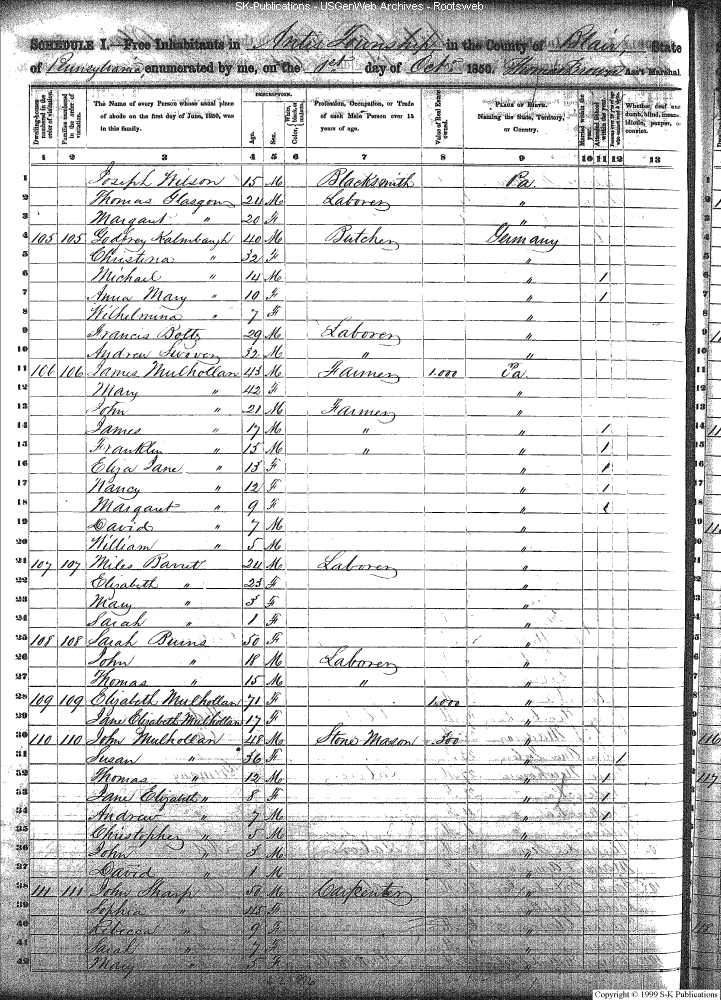 SK-Publications - USGenWeb Archives - Rootsweb
SCHEDULE I.—Free Inhabitants in Antis Township in the County of Blair, State
of Pennsylvania enumerated by me, on the 1st day of Oct 1850. Ass't Marshal
Dwelling-houses numbered in the order of visitation.
Families numbered in the order of visitation.
The Name of every Person whose usual place of abode on the first day of June, 1850, was in this family.
DESCRIPTION.
Age.
Sex.
Color, White, black, or mulatto.
Profession, Occupation, or Trade of each Male Person over 15 years of age.
Value of Real Estate owned.
PLACE OF BIRTH. Naming the State, Territory, or Country.
Married within the year.
Attended School within the year.
Whether deaf and dumb, blind, insane, idiotic, pauper, or convict.
1 2 3 4 5 6 7 8 9 10 11 12 13
1 Joseph Wilson 15 M Blacksmith Pa
2 Thomas Glasgow 24 M Laborer "
3 Margaret " 20 F "
4 105 105 Godfrey Kalmbaugh 40 M Butcher Germany
5 Christina " 32 F "
6 Michael " 14 M " 1
7 Anna Mary " 10 F " 1
8 Wilhelmina " 7 F "
9 Francis Bottz 29 M Laborer "
10 Andrew 32 M " "
11 106 106 James Mulhollan 43 M Farmer 1.000 Pa
12 Mary " 42 F "
13 John " 21 M Farmer "
14 James " 17 M " " 1
15 Franklin " 15 M " " 1
16 Eliza Jane " 13 F " 1
17 Nancy " 12 F " 1
18 Margaret " 9 F " 1
19 David " 7 M "
20 William " 5 M "
21 107 107 Miles Barret 24 M Laborer "
22 Elizabeth " 23 F "
23 Mary " 3 F "
24 Sarah " 1 F "
25 108 108 Sarah Burns 50 F "
26 John " 18 M Laborer "
27 Thomas " 15 M " "
28 109 109 Elizabeth Mulhollan 71 F 1.000 "
29 Jane Elizabeth Mulhollan 17 F "
30 110 110 John Mulhollan 48 M Stone Mason .300 "
31 Susan " 36 F " 1
32 Thomas " 12 M " 1
33 Jane Elizabeth " 8 F " 1
34 Andrew " 7 M " 1
35 Christopher " 5 M "
36 John " 3 M "
37 David " 1 M "
38 111 111 John Sharp 50 M Carpenter "
39 Sophia " 45 F "
40 Rebecca " 9 F "
41 Sarah " 7 F "
42 Mary " 5 F "
Copyright © 1999 S-K Publications